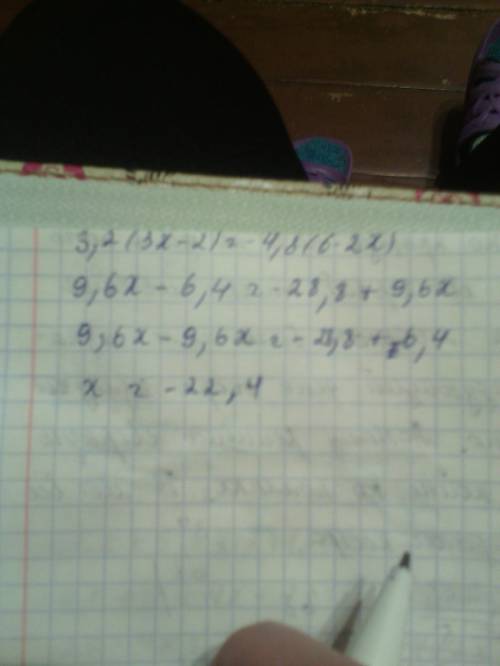 3,2(3x-2)=-4,8(6-2x)
9,6x-6,4=-28,8+9,6x
9,6x-9,6x=-28,8+6,4
x=-22,4